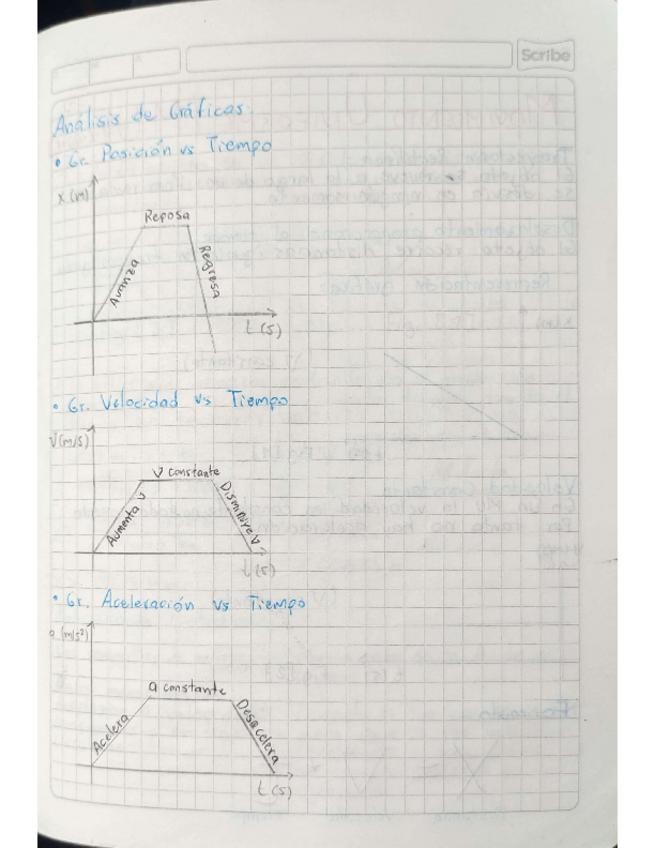 Scribe
Análisis de Gráficas.
• Gr. Posición vs Tiempo
x (m)
Reposa
Avanza
Regresa
t (s)
• Gr. Velocidad vs Tiempo
V (m/s)
V constante
Aumenta v
Disminuye v
t (s)
• Gr. Aceleración vs Tiempo
a (m/s²)
a constante
Acelera
Desacelera
t (s)